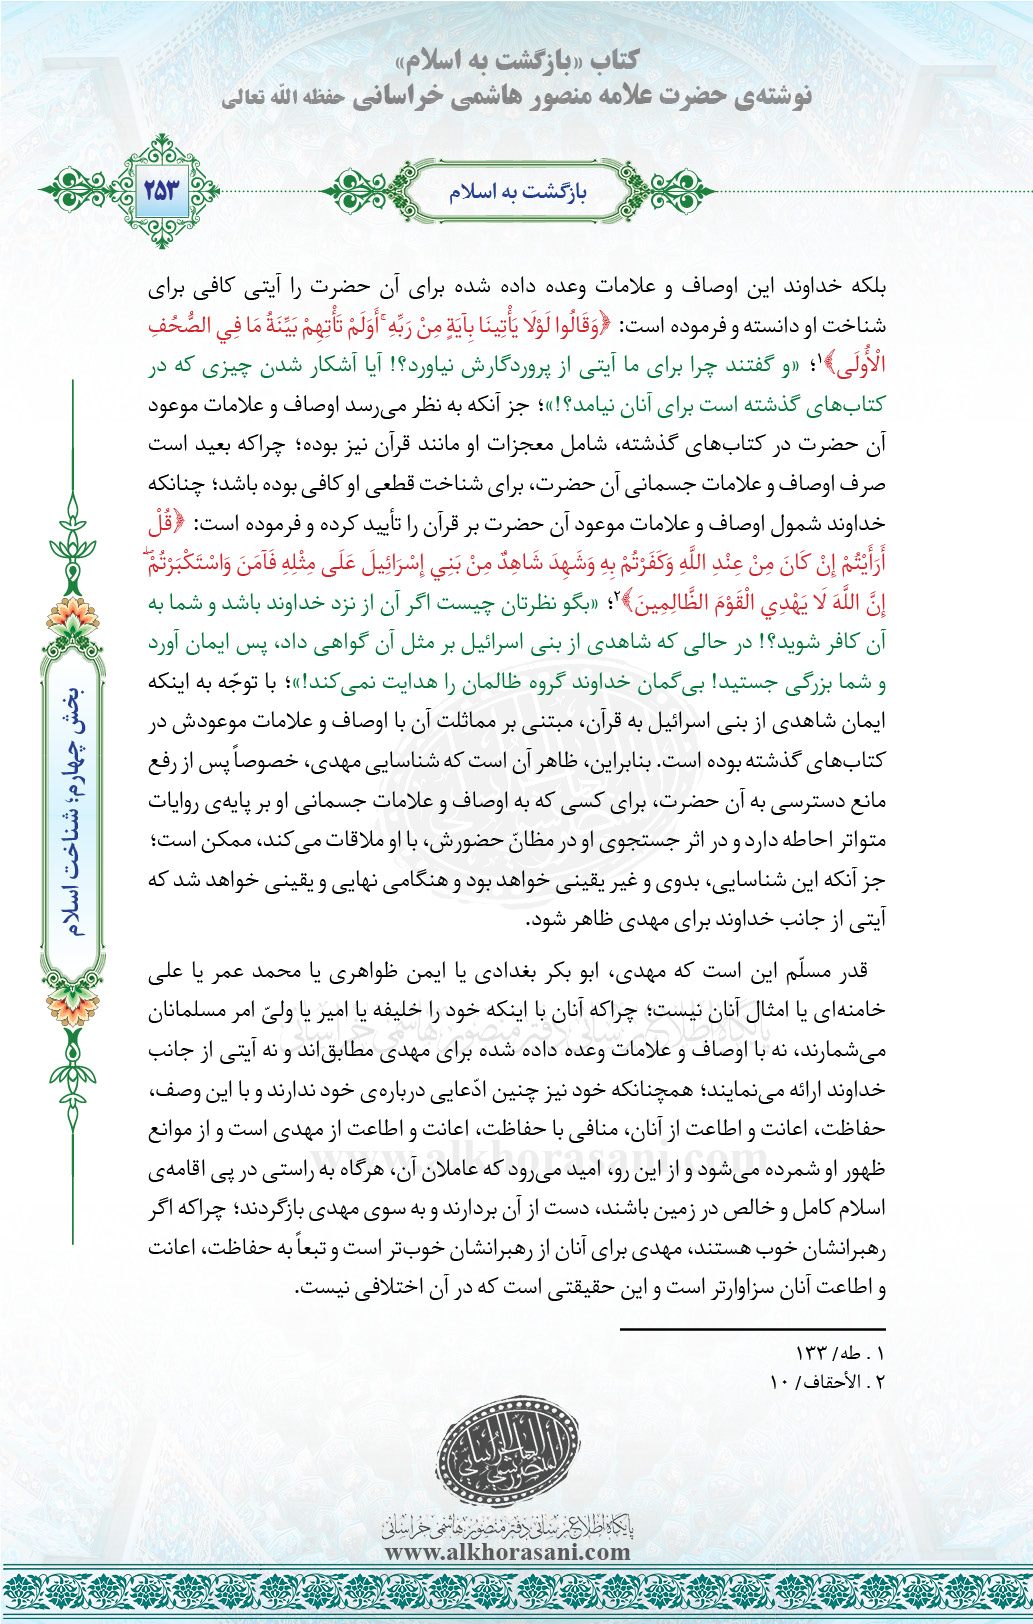 کتاب «بازگشت به اسلام»
نوشته‌ی حضرت علامه منصور هاشمی خراسانی حفظه الله تعالی
بازگشت به اسلام
۲۵۳
بلکه خداوند این اوصاف و علامات وعده داده شده برای آن حضرت را آیتی کافی برای
شناخت او دانسته و فرموده است: ﴿وَقَالُوا لَوْلَا يَأْتِينَا بِآيَةٍ مِنْ رَبِّهِ ۚ أَوَلَمْ تَأْتِهِمْ بَيِّنَةُ مَا فِي الصُّحُفِ
الْأُولَى﴾۱؛ «و گفتند چرا برای ما آیتی از پروردگارش نیاورد؟! آیا آشکار شدن چیزی که در
کتاب‌های گذشته است برای آنان نیامد؟!»؛ جز آنکه به نظر می‌رسد اوصاف و علامات موعود
آن حضرت در کتاب‌های گذشته، شامل معجزات او مانند قرآن نیز بوده؛ چراکه بعید است
صرف اوصاف و علامات جسمانی آن حضرت، برای شناخت قطعی او کافی بوده باشد؛ چنانکه
خداوند شمول اوصاف و علامات موعود آن حضرت بر قرآن را تأیید کرده و فرموده است: ﴿قُلْ
أَرَأَيْتُمْ إِنْ كَانَ مِنْ عِنْدِ اللَّهِ وَكَفَرْتُمْ بِهِ وَشَهِدَ شَاهِدٌ مِنْ بَنِي إِسْرَائِيلَ عَلَى مِثْلِهِ فَآمَنَ وَاسْتَكْبَرْتُمْ ۖ
إِنَّ اللَّهَ لَا يَهْدِي الْقَوْمَ الظَّالِمِينَ﴾۲؛ «بگو نظرتان چیست اگر آن از نزد خداوند باشد و شما به
آن کافر شوید؟! در حالی که شاهدی از بنی اسرائیل بر مثل آن گواهی داد، پس ایمان آورد
و شما بزرگی جستید! بی‌گمان خداوند گروه ظالمان را هدایت نمی‌کند!»؛ با توجّه به اینکه
ایمان شاهدی از بنی اسرائیل به قرآن، مبتنی بر مماثلت آن با اوصاف و علامات موعودش در
کتاب‌های گذشته بوده است. بنابراین، ظاهر آن است که شناسایی مهدی، خصوصاً پس از رفع
مانع دسترسی به آن حضرت، برای کسی که به اوصاف و علامات جسمانی او بر پایه‌ی روایات
متواتر احاطه دارد و در اثر جستجوی او در مظانّ حضورش، با او ملاقات می‌کند، ممکن است؛
جز آنکه این شناسایی، بدوی و غیر یقینی خواهد بود و هنگامی نهایی و یقینی خواهد شد که
آیتی از جانب خداوند برای مهدی ظاهر شود.
قدر مسلّم این است که مهدی، ابو بکر بغدادی یا ایمن ظواهری یا محمد عمر یا علی
خامنه‌ای یا امثال آنان نیست؛ چراکه آنان با اینکه خود را خلیفه یا امیر یا ولیّ امر مسلمانان
می‌شمارند، نه با اوصاف و علامات وعده داده شده برای مهدی مطابق‌اند و نه آیتی از جانب
خداوند ارائه می‌نمایند؛ همچنانکه خود نیز چنین ادّعایی درباره‌ی خود ندارند و با این وصف،
حفاظت، اعانت و اطاعت از آنان، منافی با حفاظت، اعانت و اطاعت از مهدی است و از موانع
ظهور او شمرده می‌شود و از این رو، امید می‌رود که عاملان آن، هرگاه به راستی در پی اقامه‌ی
اسلام کامل و خالص در زمین باشند، دست از آن بردارند و به سوی مهدی بازگردند؛ چراکه اگر
رهبرانشان خوب هستند، مهدی برای آنان از رهبرانشان خوب‌تر است و تبعاً به حفاظت، اعانت
و اطاعت آنان سزاوارتر است و این حقیقتی است که در آن اختلافی نیست.
۱ . طه/ ۱۳۳
۲ . الأحقاف/ ۱۰
بخش چهارم؛ شناخت اسلام
پایگاه اطلاع‌رسانی دفتر منصور هاشمی خراسانی
www.alkhorasani.com